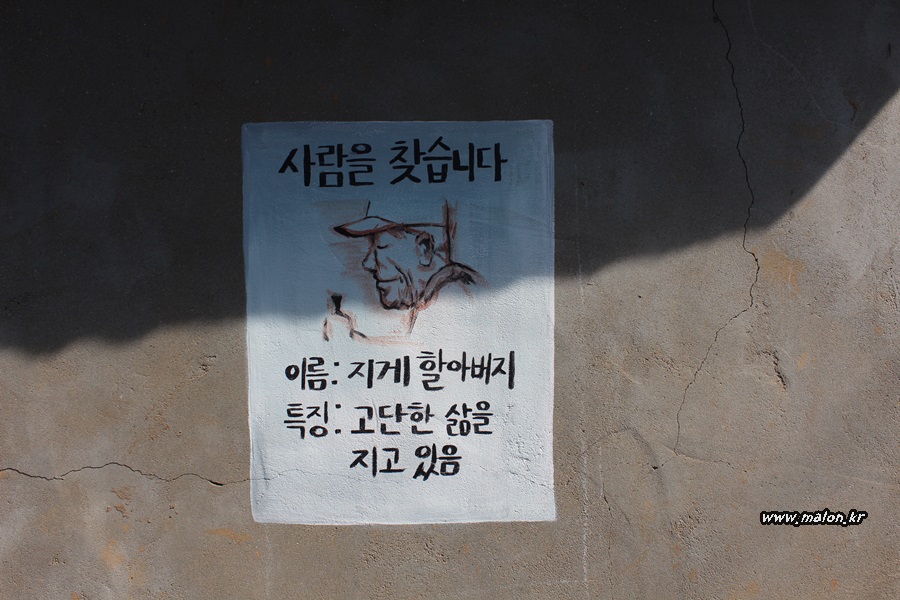 사람을 찾습니다
이름: 지게 할아버지
특징: 고단한 삶을
지고 있음
www_malon_kr